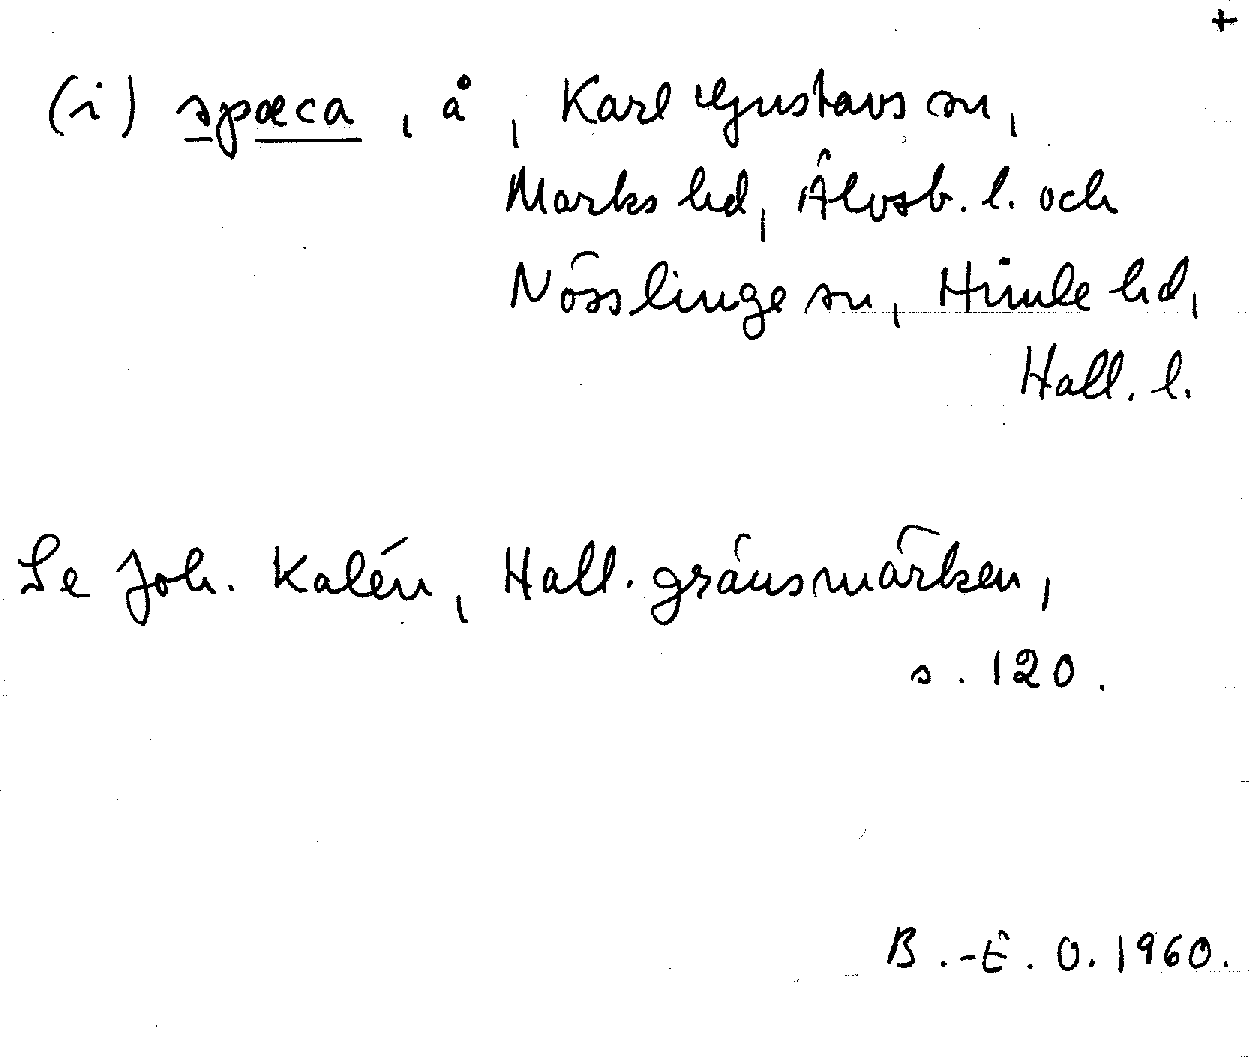 +
(i) spæca, å, Karl Gustavs sn,
Marks hd, Älvsb. l. och
Nösslinge sn, Himle hd,
Hall. l.
Se Joh. Kalén, Hall. gränsmärken,
s. 120.
B.-E. O. 1960.